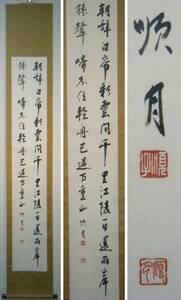 朝辞白帝彩雲間千里江陵一日還両岸
猿聲啼不住軽舟已過万重山 順月
朝辞白帝彩雲間千里江陵一日還両岸
猿聲啼不住軽舟已過万重山 順月
順月